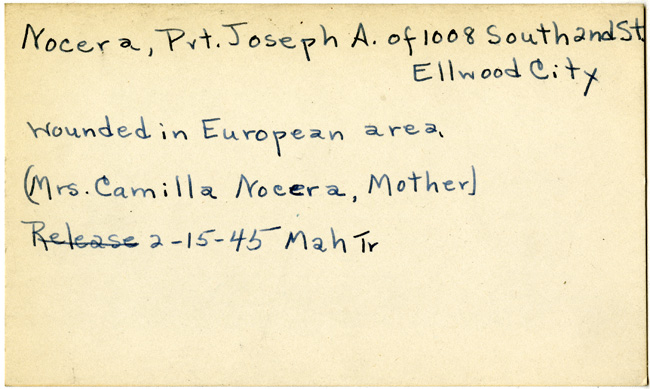 Nocera, Pvt. Joseph A. of 1008 South 2nd St.
Ellwood City
wounded in European area.
(Mrs. Camilla Nocera, Mother)
Release 2-15-45 Mah Tr